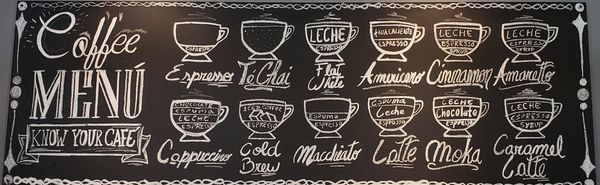 Coffee
MENÚ
KNOW YOUR CAFE
ESPRESSO
Espresso
Té Chai
LECHE
ESPRESSO
Flat
White
AGUA CALIENTE
ESPRESSO
Americano
LECHE
ESPRESSO
Cinnamon
LECHE
ESPRESSO
SYRUP
Amaretto
CHOCOLATE
ESPUMA
LECHE
ESPRESSO
Cappuccino
ICED COFFEE
ESPRESSO
Cold
Brew
ESPUMA
ESPRESSO
Macchiato
ESPUMA
Leche
ESPRESSO
Latte
LECHE
Chocolate
ESPRESSO
Moka
LECHE
ESPRESSO
SYRUP
Caramel
Latte